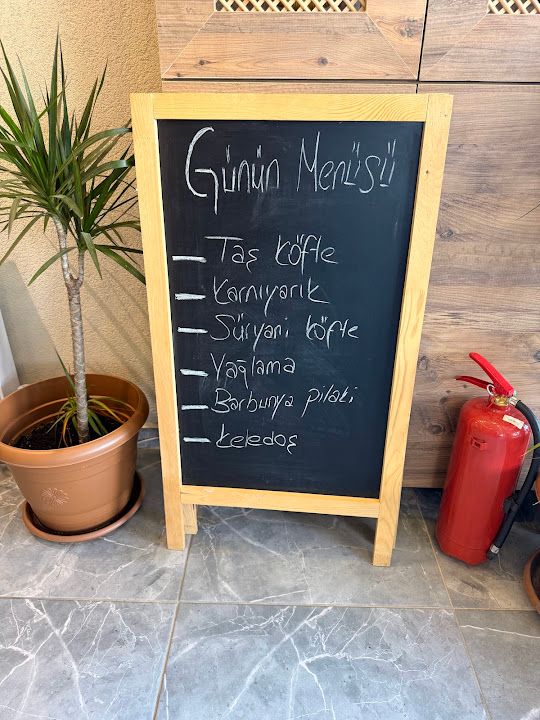 Günün Menüsü
Taş köfte
Karnıyarık
Süryani köfte
Yağlama
Barbunya pilaki
Keledoş